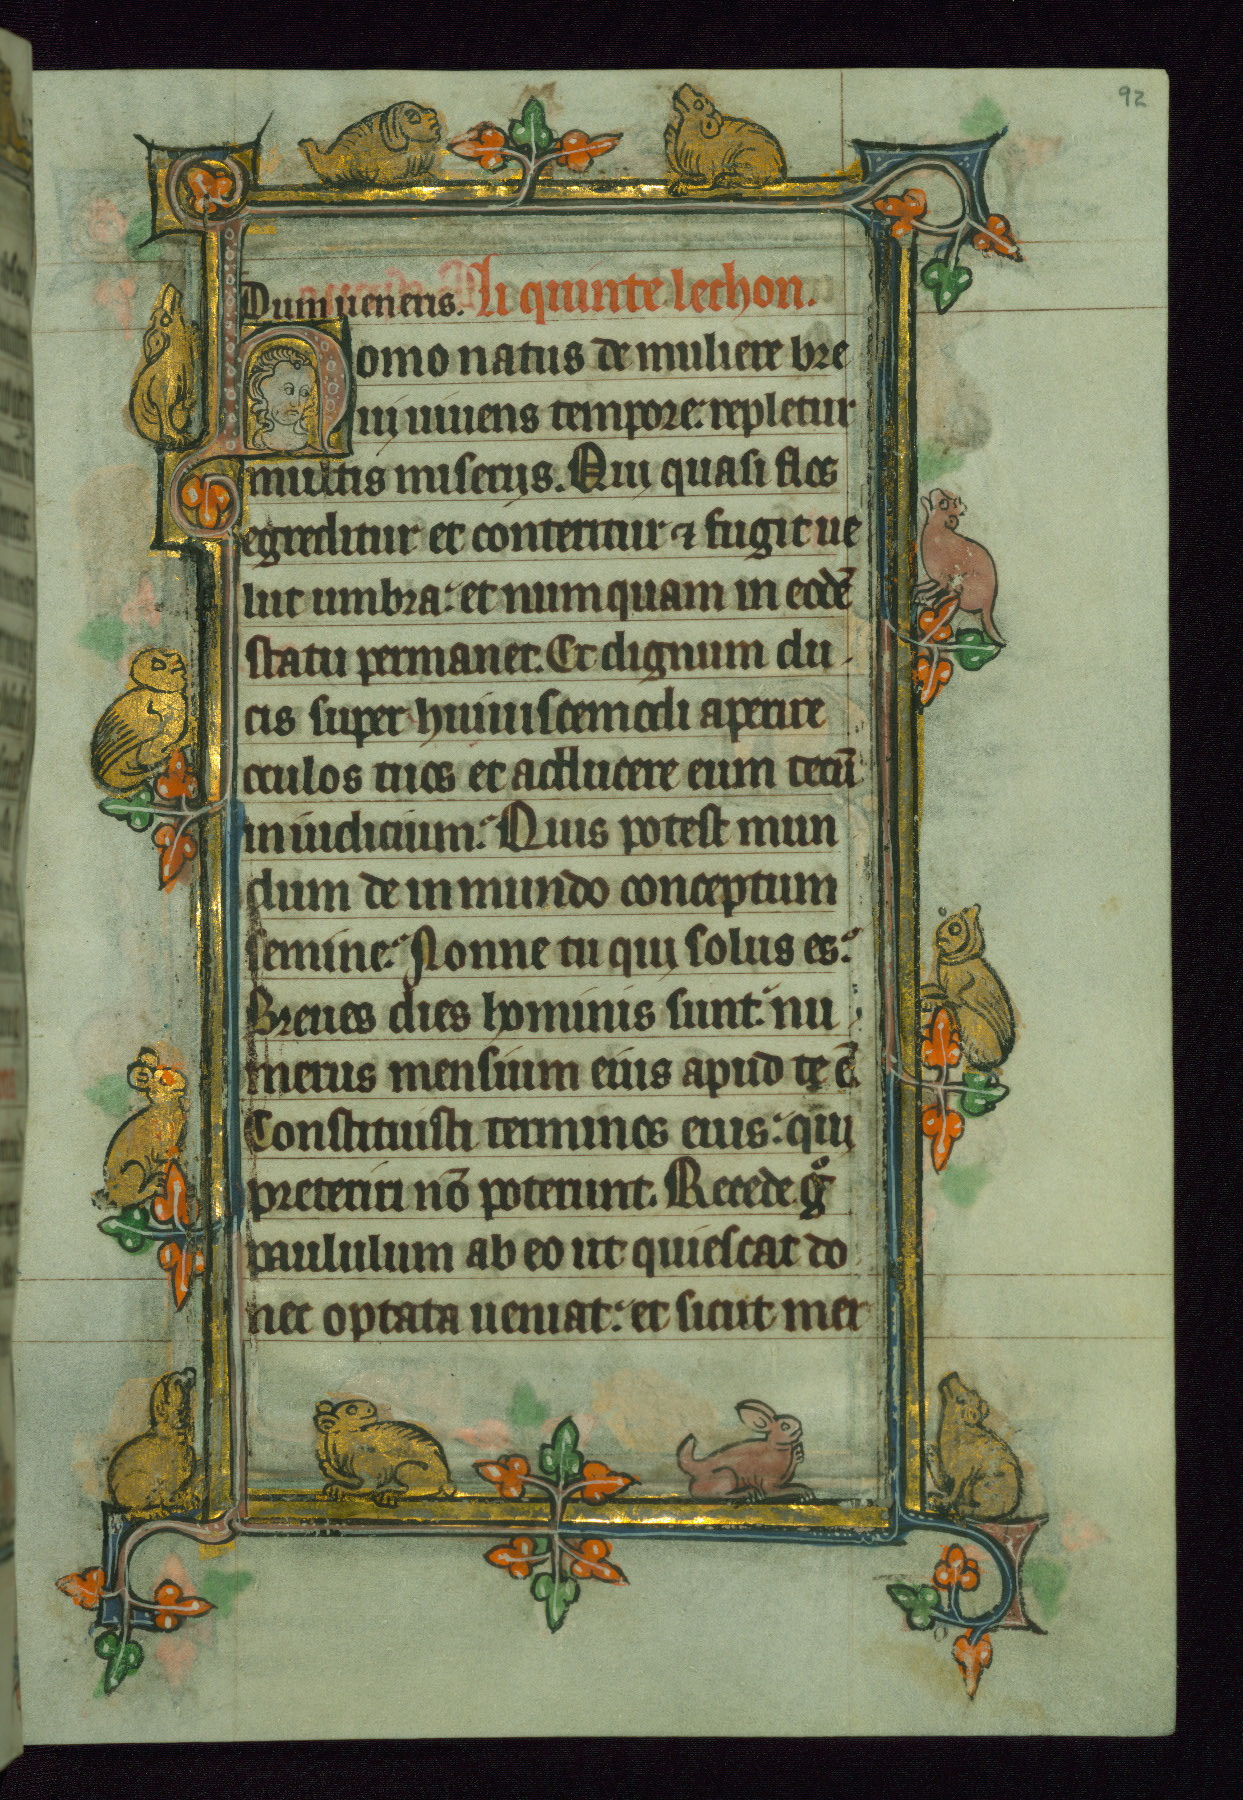 92
Dum ueneris. Li quinte lechon.
Homo natus de muliere bre
ui uiuens tempore: repletur
multis miseriis. Qui quasi flos
egreditur et conteritur ⁊ fugit ue
lut umbra: et numquam in eodē
statu permanet. Et dignum du
cis super huiuiscemodi aperire
oculos tuos et adducere eum tecū
in iudicium: Quis potest mun
dum de inmundo conceptum
semine: Nonne tu qui solus es:
Breues dies hominis sunt: nu
merus mensium eius apud te ē.
Constituisti terminos eius: qui
preteriri nō poterunt. Recede gͦ
paululum ab eo ut quiescat do
nec optata ueniat: et sicut mer